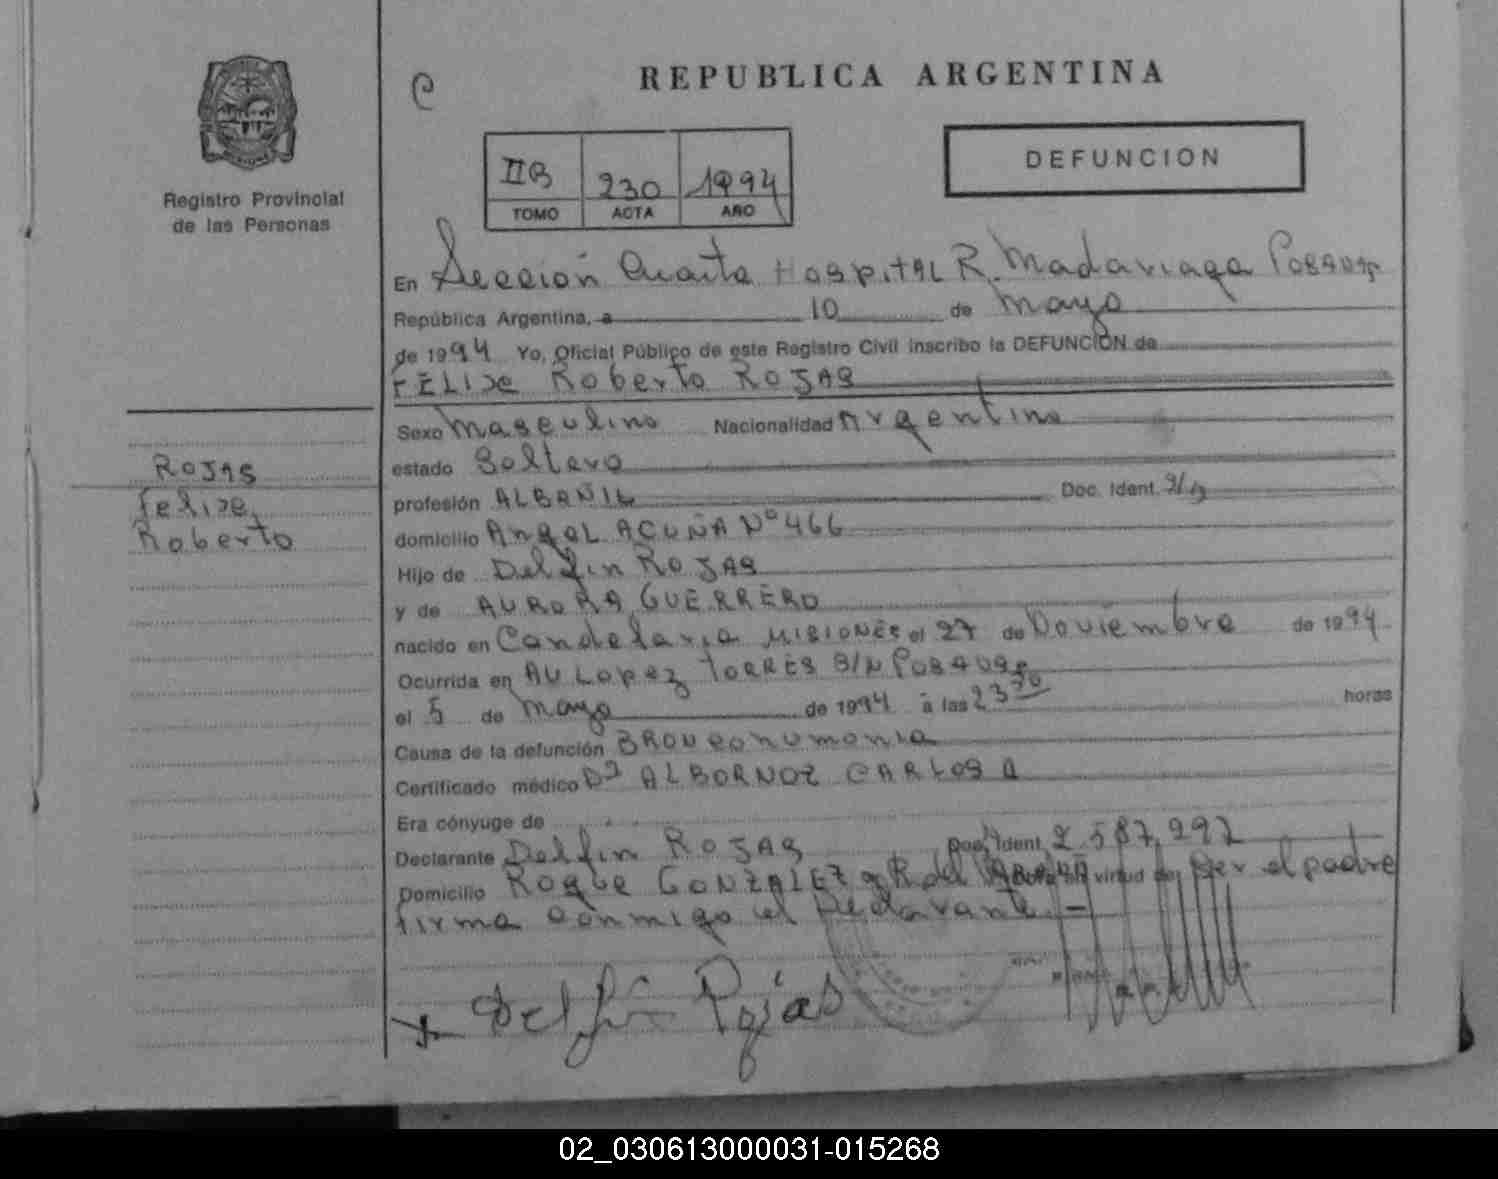 REPUBLICA ARGENTINA
DEFUNCION
IIB 230 1994
TOMO ACTA AÑO
Registro Provincial
de las Personas
En Sección Cuarta Hospital R. Madariaga Posadas
República Argentina, a 10 de mayo
de 1994 Yo, Oficial Público de este Registro Civil inscribo la DEFUNCION de
FELISE Roberto ROJAS
Sexo Masculino Nacionalidad Argentino
estado Soltero
profesión ALBAÑIL Doc. Ident.
domicilio Angel ACUÑA Nº 466
Hijo de Delfin ROJAS
y de AURORA GUERRERO
nacido en Candelaria MISIONES el 27 de Noviembre de 1994
Ocurrida en AV Lopez TORRES S/N Posadas
el 5 de mayo de 1994 a las 23 horas
Causa de la defunción BRONconumonia
Certificado médico Dr ALBORNOZ CARLOS A
Era cónyuge de
Declarante Delfin ROJAS Doc. Ident. 2.587.297
Domicilio Roque GONZALEZ y R. del virtud de Ser el padre
firma conmigo el Declarante. -
Delfin Rojas
ROJAS
Felise
Roberto
02_030613000031-015268